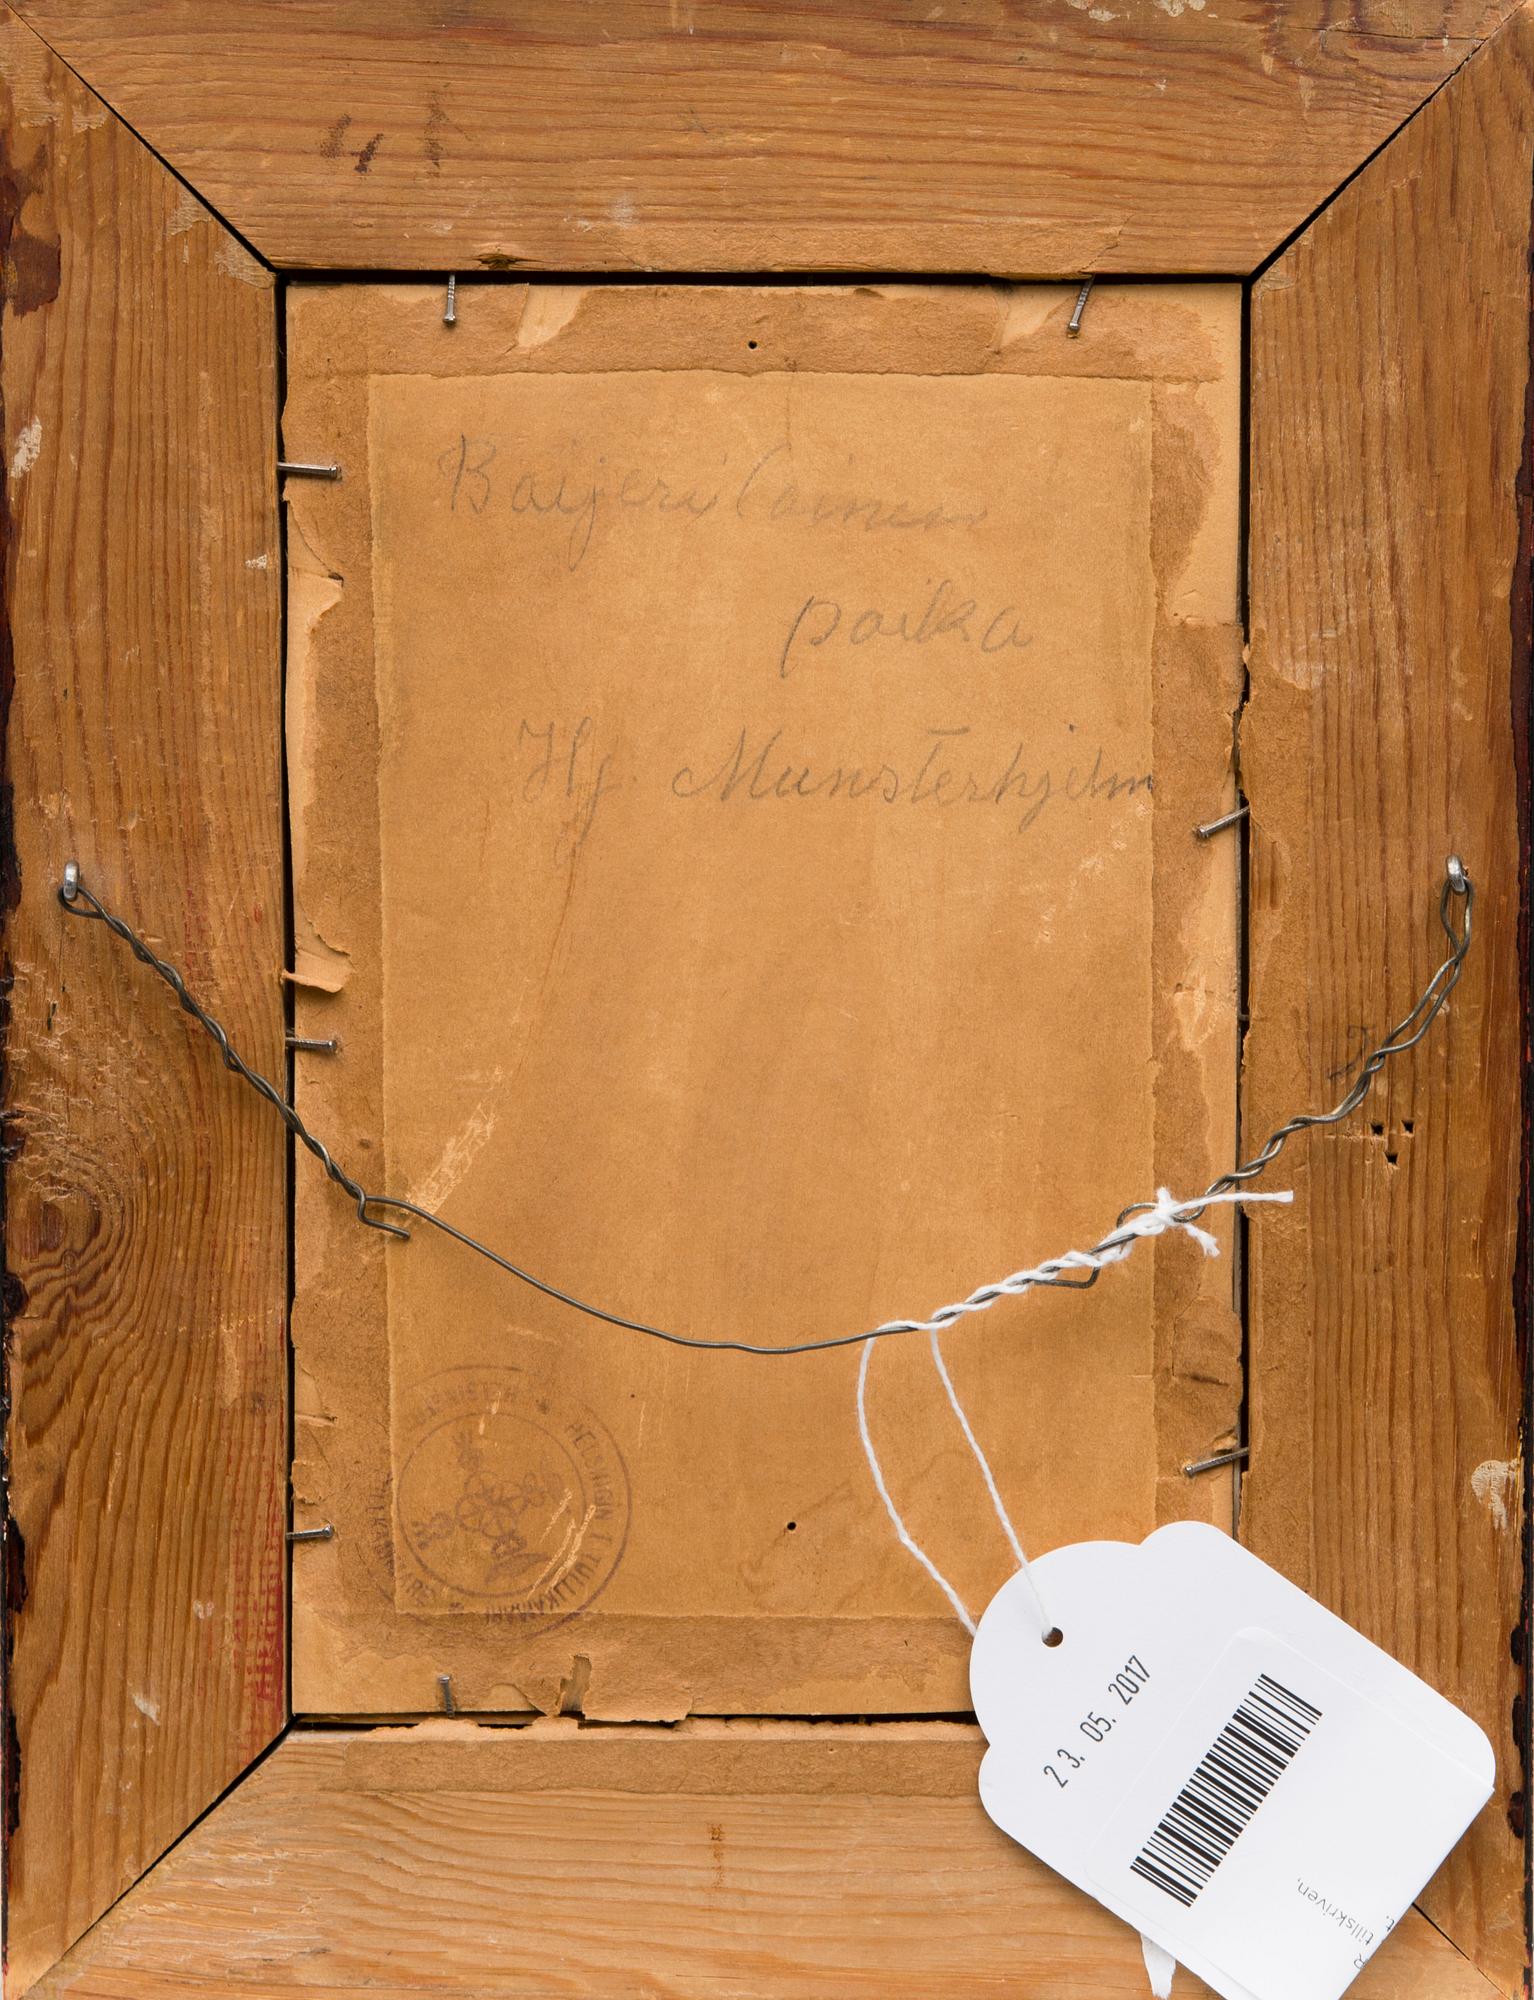 Baijerilainen
poika
Hj. Munsterhjelm
HELSINGIN T. TULLIKAMARI
23. 05. 2017
tillskriven,
t.